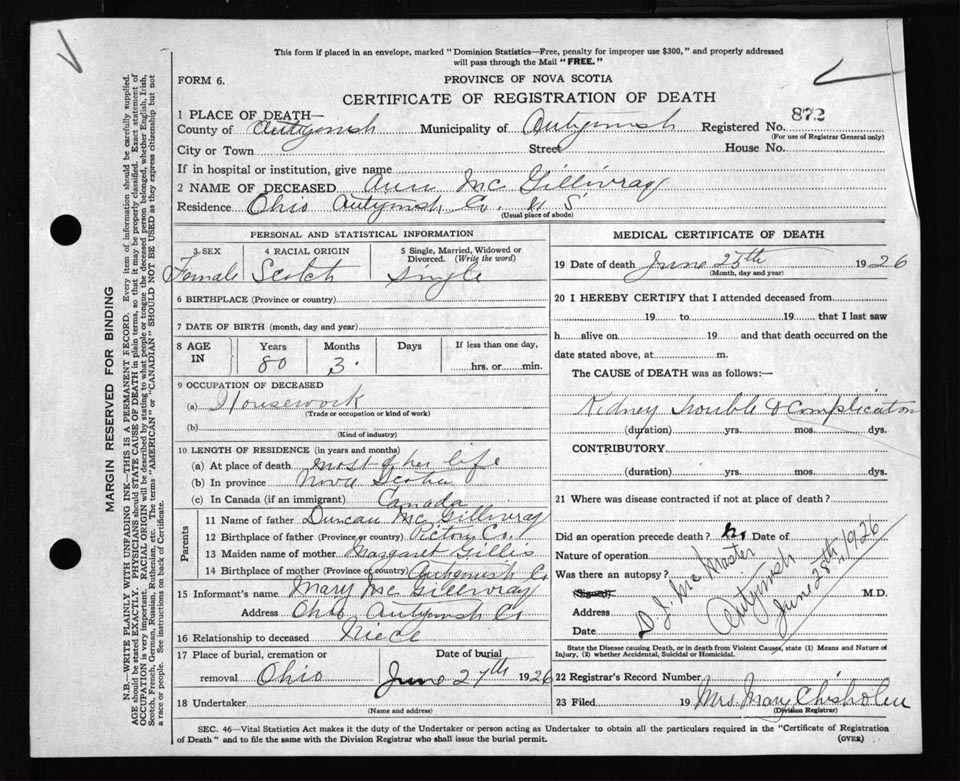 This form if placed in an envelope, marked "Dominion Statistics—Free, penalty for improper use $300," and properly addressed
will pass through the Mail "FREE."
FORM 6. PROVINCE OF NOVA SCOTIA
CERTIFICATE OF REGISTRATION OF DEATH
1 PLACE OF DEATH—
County of Antigonish Municipality of Antigonish Registered No. 872
(For use of Registrar General only)
City or Town Street House No.
If in hospital or institution, give name
2 NAME OF DECEASED Ann Mc Gillivray
Residence Ohio Antigonish Co. N S
(Usual place of abode)
PERSONAL AND STATISTICAL INFORMATION
3 SEX 4 RACIAL ORIGIN 5 Single, Married, Widowed or Divorced. (Write the word)
Female Scotch Single
6 BIRTHPLACE (Province or country)
7 DATE OF BIRTH (month, day and year)
8 AGE IN Years Months Days If less than one day,
80 3 hrs. or min.
9 OCCUPATION OF DECEASED
(a) Housework
(Trade or occupation or kind of work)
(b)
(Kind of industry)
10 LENGTH OF RESIDENCE (in years and months)
(a) At place of death most of her life
(b) In province Nova Scotia
(c) In Canada (if an immigrant) Canada
Parents
11 Name of father Duncan McGillivray
12 Birthplace of father (Province or country) Victory Co.
13 Maiden name of mother Margaret Gillis
14 Birthplace of mother (Province or country) Antigonish Co
15 Informant's name Mary McGillivray
Address Ohio Antigonish Co
16 Relationship to deceased Niece
17 Place of burial, cremation or removal Ohio Date of burial June 27th 1926
18 Undertaker
(Name and address)
MEDICAL CERTIFICATE OF DEATH
19 Date of death June 25th 1926
(Month, day and year)
20 I HEREBY CERTIFY that I attended deceased from
19 to 19 that I last saw
h alive on 19 and that death occurred on
date stated above, at m.
The CAUSE of DEATH was as follows:—
Kidney trouble & Complication
(duration) yrs. mos. dys.
CONTRIBUTORY
(duration) yrs. mos. dys.
21 Where was disease contracted if not at place of death?
Did an operation precede death? No Date of
Nature of operation
Was there an autopsy?
(Signed) M.D.
Address
Date
D. J. Mc Master
Antigonish
June 28th, 1926
State the Disease causing Death, or in death from Violent Causes, state (1) Means and Nature of
Injury, (2) whether Accidental, Suicidal or Homicidal.
22 Registrar's Record Number
23 Filed 19 Mrs. Mary Chisholm
(Division Registrar)
SEC. 46—Vital Statistics Act makes it the duty of the Undertaker or person acting as Undertaker to obtain all the particulars required in the "Certificate of Registration
of Death" and to file the same with the Division Registrar who shall issue the burial permit. (OVER)
MARGIN RESERVED FOR BINDING
N.B.—WRITE PLAINLY WITH UNFADING INK—THIS IS A PERMANENT RECORD. Every item of information should be carefully supplied.
AGE should be stated EXACTLY. PHYSICIANS should STATE CAUSE OF DEATH in plain terms, so that it may be properly classified. Exact statement of
OCCUPATION is very important. RACIAL ORIGIN will be described by stating to what people or tongue the deceased person belonged, whether English, Irish,
Scotch, French, German, Russian, Ruthenian, etc. The terms "AMERICAN" or "CANADIAN" SHOULD NOT BE USED as they express citizenship but not
a race or people. See instructions on back of Certificate.